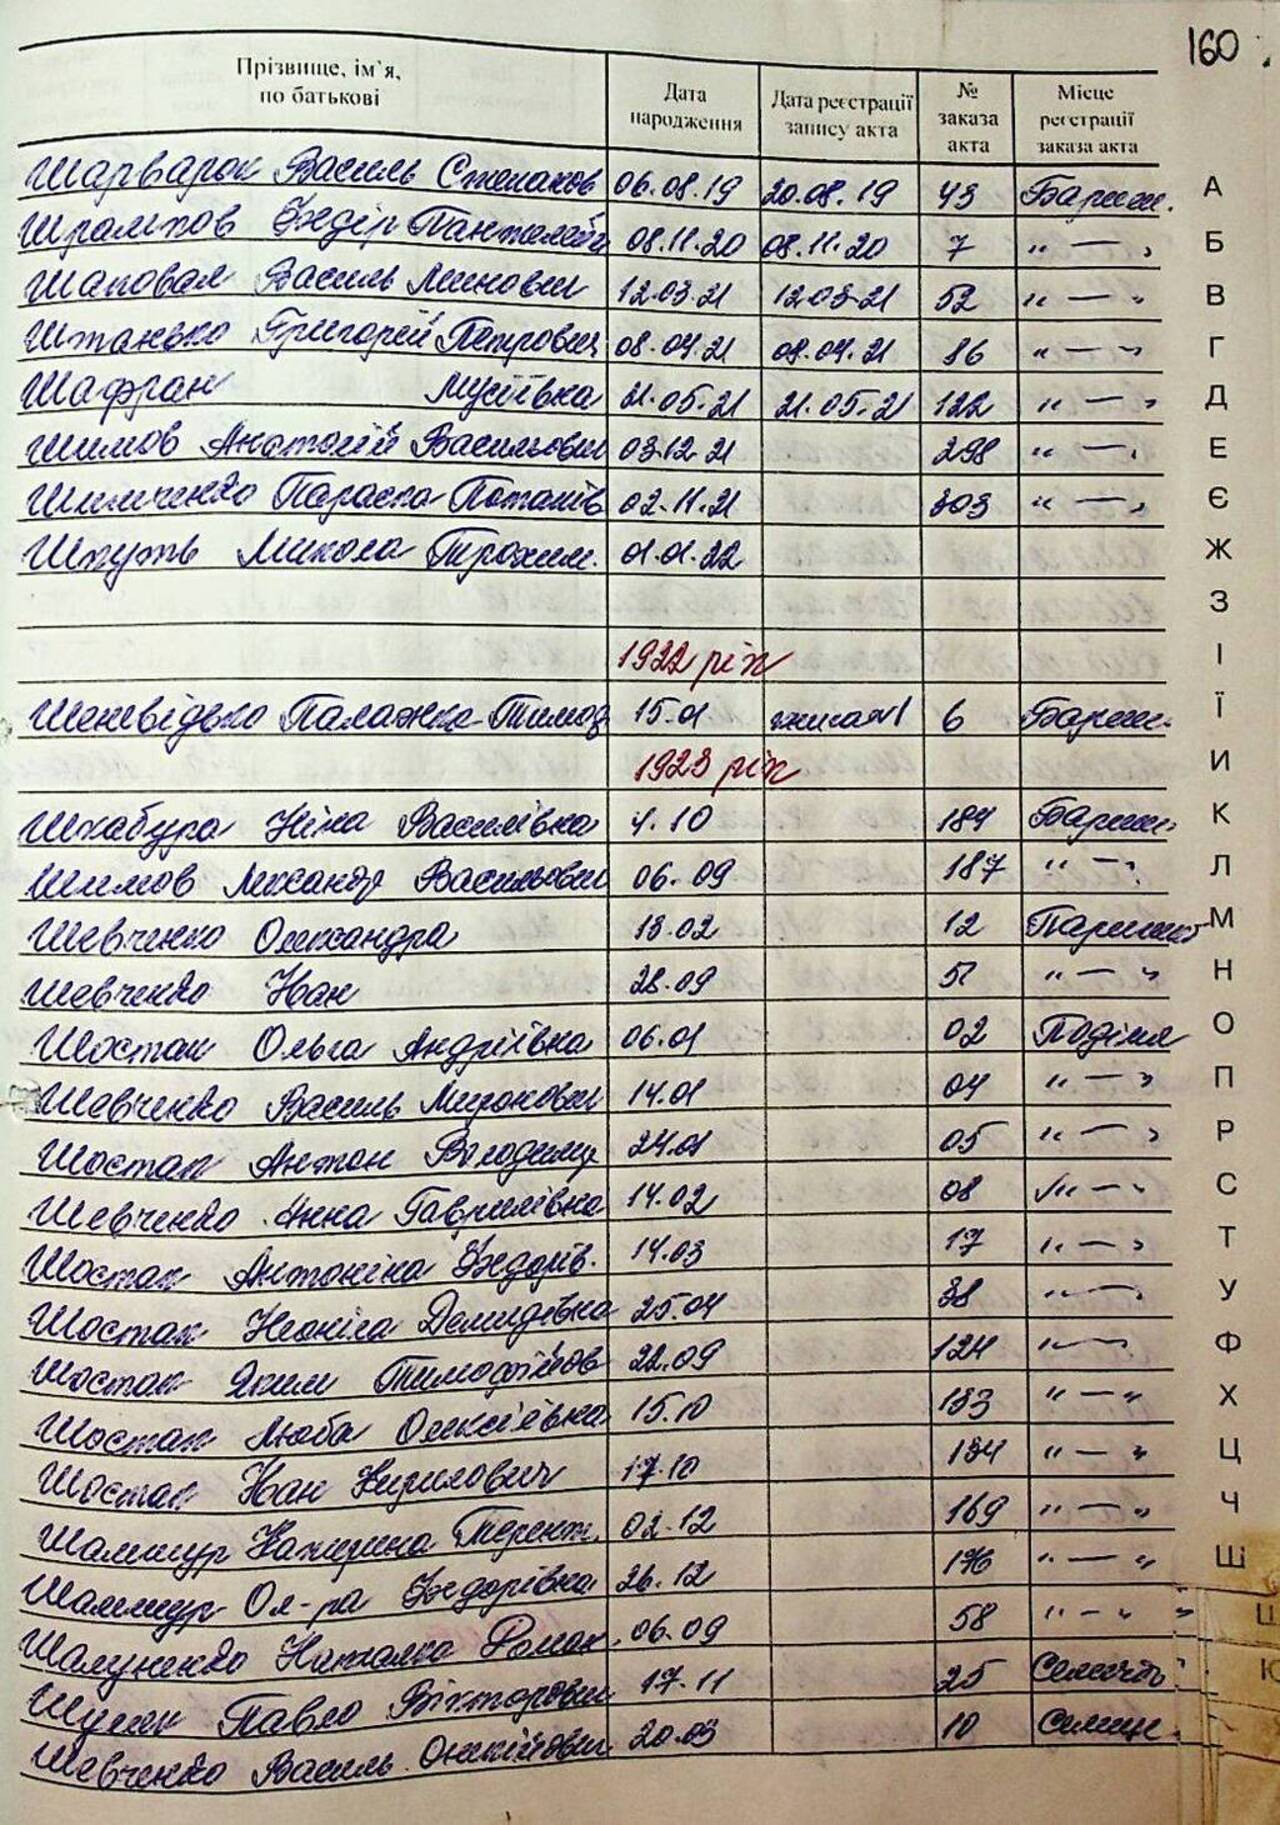 160
Прізвище, ім'я, по батькові Дата народження Дата реєстрації запису акта № заказа акта Місце реєстрації заказа акта
Шарварок Василь Степанов 06.08.19 20.08.19 43 Бариш. А
Шрамков Федір Пантелей 08.11.20 08.11.20 7 " — " Б
Шаповал Василь Минович 12.03.21 12.03.21 52 " — " В
Штанько Григорій Петрович 08.04.21 08.04.21 86 " — " Г
Шафран Мусіївна 21.05.21 21.05.21 122 " — " Д
Шимов Анатолій Васильович 03.12.21 298 " — " Е
Параска Потапів 02.11.21 303 " — " Є
Шпуть Микола Трохим. 01.01.22 Ж
З
1922 рік І
Шенвідько Палажка Тимоф 15.01 6 Бариш. Ї
1923 рік И
Шкабура Ніна Василівна 4.10 184 Бариш. К
Шимов Лександр Васильович 06.09 187 " — " Л
Шевченко Олександра 13.02 12 М
Шевченко Іван 28.09 51 " — " Н
Шостак Ольга Андріївна 06.01 02 Поділля О
Шевченко Василь Миронович 14.01 04 " — " П
Шостак Антон Володимир 24.01 05 " — " Р
Шевченко Анна Гаврилівна 14.02 08 " — " С
Шостак Антоніна Федорів. 14.03 17 " — " Т
Шостак Неоніла Демидівна 25.04 38 " — " У
Шостак Яким Тимофійов 22.09 124 " — " Ф
Шостак Люба Олексіївна 15.10 133 " — " Х
Шостак Іван Кирилович 17.10 134 " — " Ц
Шамшур Катерина Терент. 02.12 169 " — " Ч
Шамшур Ол-ра Федорівна 26.12 176 " — " Ш
Шалуненко Наталка Роман. 06.09 58 " — " " Щ
Павло Вікторович 17.11 25 Ю
Шевченко Василь 20.03 10 Селищ.